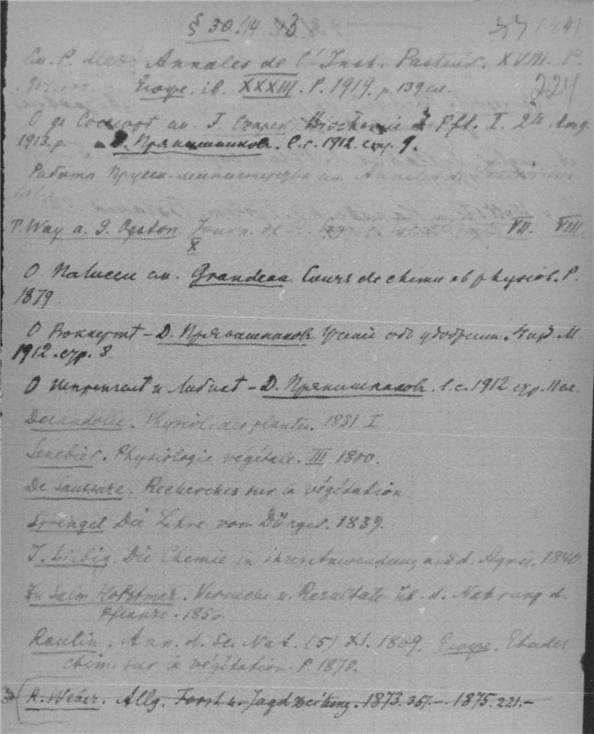 § 30. 14. 13
См. P. Mazé Annales de l'Inst. Pasteur. XVIII. P.
Его же, ib. XXXIII. P. 1919. p. 139
224
О де Соссюре см. F. Czapek Biochemie d Pfl. I. 2te Aufg.
1913. p. Д. Прянишников. l. c. 1912. стр. 9.
Работа Прусск. министерства см. Annales
T. Way a. J. Ogston. Journ. of VII. VIII.
X
О Палисси см. Grandeau Cours de chimie physiol. P.
1879.
О Воккерте - Д. Прянишников Учение об удобрении. 4 изд. М.
1912. стр. 8.
О Шпренгеле и Либихе - Д. Прянишников. l. c. 1912 стр. 11
Decandolle. Physiol. des plantes. 1831. I
Senebier. Physiologie végétale. III. 1800.
De Saussure. Recherches sur la végétation.
Sprengel Die Lehre vom Dünger. 1839.
J. Liebig. Die Chemie in ihrer Anwendung auf d. Agric. 1840.
Fu Salm Horstmar. Versuche u. Resultate üb. d. Nahrung d.
Pflanze. 1850.
Raulin. Ann. d. Sc. Nat. (5) XI. 1869. Его же. Etudes
chim. sur la végétation. P. 1870.
R. Weber. Allg. Forst u. Jagdzeitung. 1873. 367.- 1875. 221.-